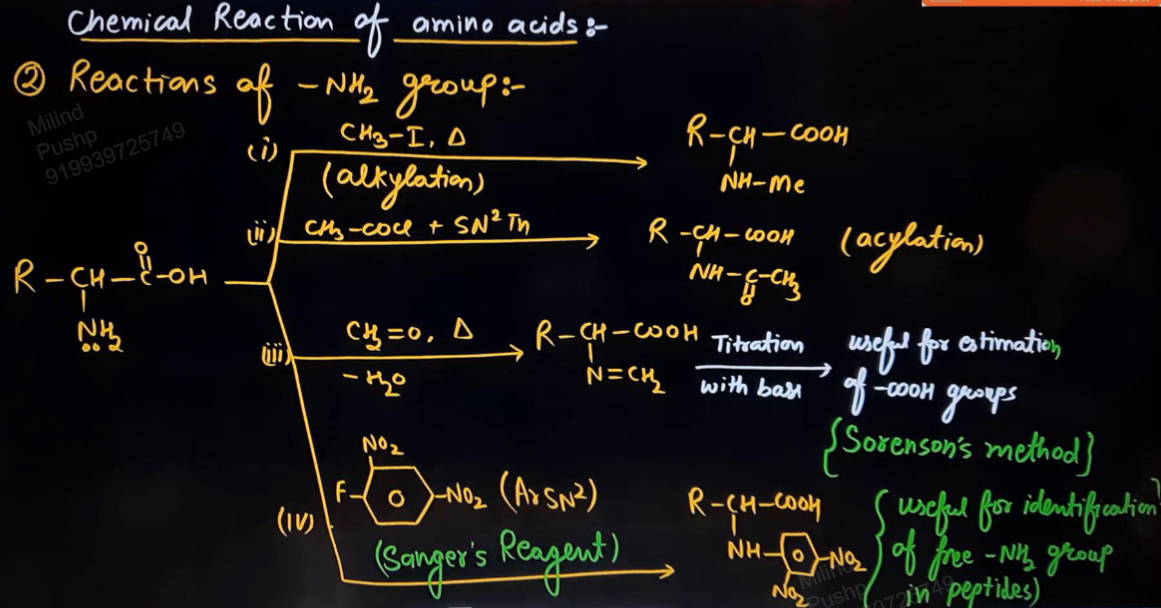 Chemical Reaction of amino acids:-
② Reactions of -NH2 group:-
Milind
Pushp
919939725749
(i) CH3-I, Δ
(alkylation)
R-CH-COOH
NH-Me
(ii) CH3-COCl + SN2Th
R-CH-COOH (acylation)
NH-C-CH3
O
O
R-CH-C-OH
NH2
(iii) CH2=O, Δ
-H2O
R-CH-COOH
N=CH2
Titration
with base
useful for estimation
of -COOH groups
{Sorenson's method}
NO2
F- O -NO2 (ArSN2)
(IV)
(Sanger's Reagent)
R-CH-COOH
NH- O -NO2
NO2
{useful for identification
of free -NH2 group
in peptides)
Milind
Pushp